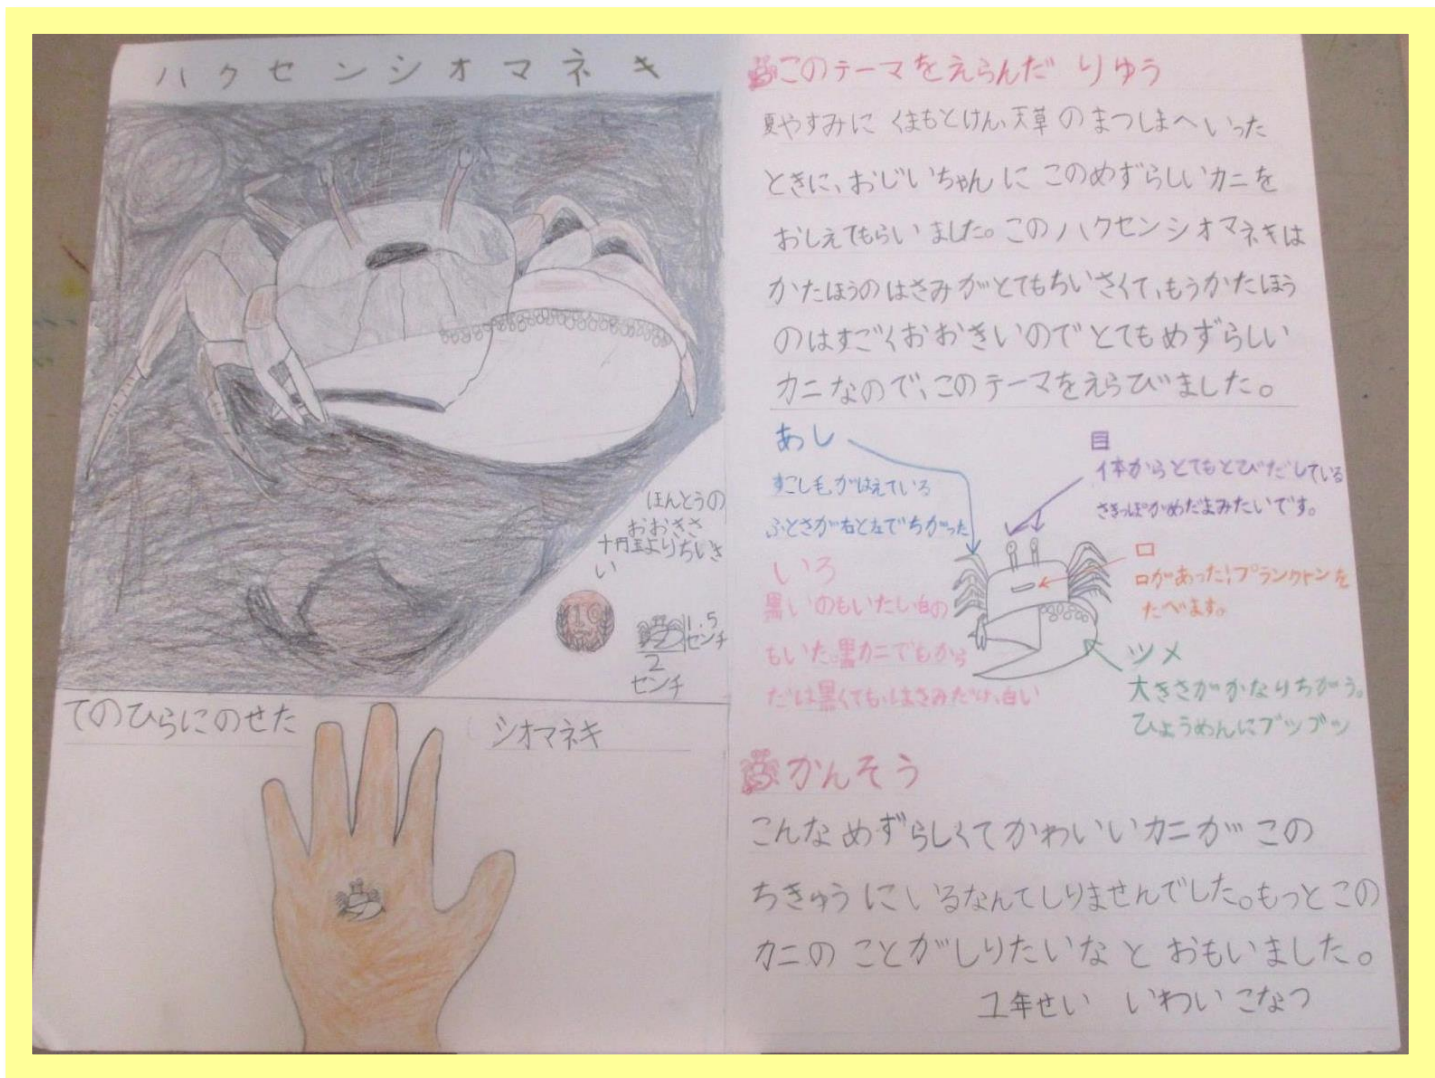 ハクセンシオマネキ
ほんとうの
おおきさ
十円玉よりちいさ
い
10
1.5
センチ
2
センチ
てのひらにのせた
シオマネキ
このテーマをえらんだ りゆう
夏やすみに くまもとけん、天草のまつしまへいった
ときに、おじいちゃんに このめずらしいカニを
おしえてもらいました。このハクセンシオマネキは
かたほうのはさみがとてもちいさくて、もうかたほう
のはすごくおおきいのでとてもめずらしい
カニなので、このテーマをえらびました。
あし
すこし毛がはえている
ふとさが右と左でちがった
目
イ本からとてもとびだしている
さきっぽがめだまみたいです。
口
口があった!プランクトンを
たべます。
いろ
黒いのもいたし白の
もいた。黒カニでもから
だは黒くても、はさみだけ、白い
ツメ
大きさがかなりちがう。
ひょうめんにブツブツ
かんそう
こんなめずらしくてかわいいカニが この
ちきゅうにいるなんてしりませんでした。もっとこの
カニの ことがしりたいな と おもいました。
1年せい いわい こなつ